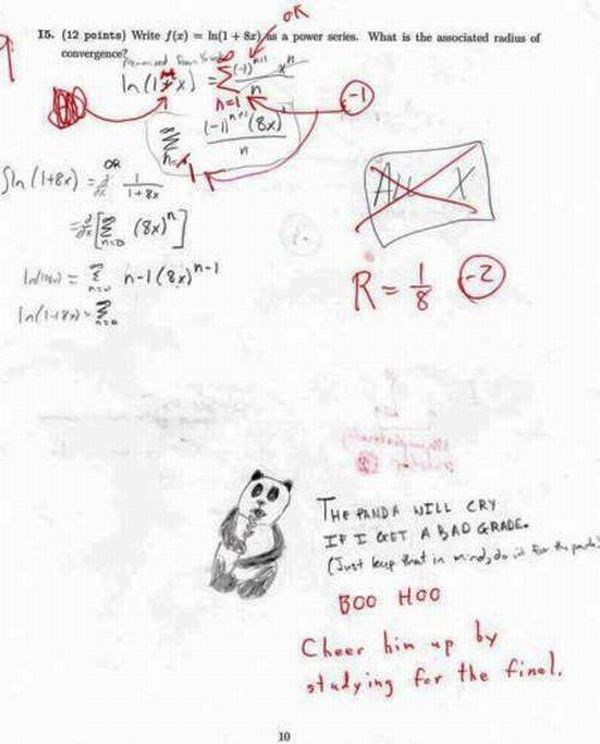 15. (12 points) Write f(x) = ln(1 + 8x) as a power series. What is the associated radius of
convergence?
OK
9
ln(1+x) = ∑ n=1 ∞ (-1)^n+1 x^n / n
-1
∑ n=1 (-1)^n+1 (8x)^n / n
OR
ln(1+8x) = 1 / 1+8x
All X
= [∑ n=0 (8x)^n]
= ∑ n-1(8x)^n-1
R = 1/8 -2
ln(1+8x) = ∑ n=0
THE PANDA WILL CRY
IF I GET A BAD GRADE.
(Just keep that in mind, do it for the panda)
BOO HOO
Cheer him up by
studying for the final.
10